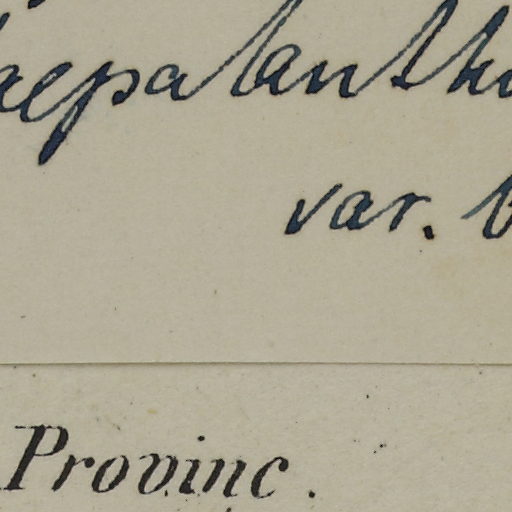 aepalantho
var.
Provinc.